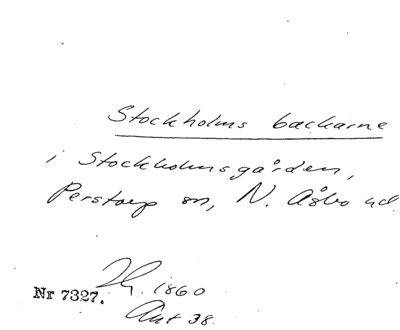 Stockholms backarne
i Stockholmsgården,
Perstorp sn, N. Åsbo hd.
1860
Nr 7327.
Ant 38.